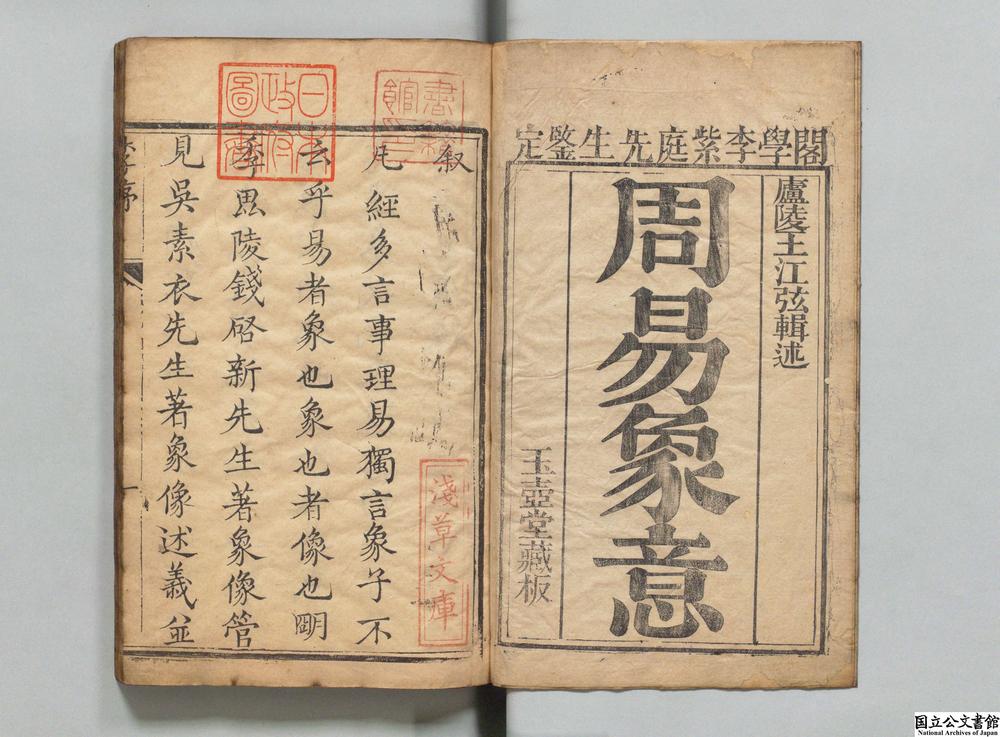 閣學李紫庭先生鑒定
盧陵王江弦輯述
周易象意
玉壺堂藏板
叙
凡經多言事理易獨言象子不
云乎易者象也象也者像也明
季毘陵錢啓新先生著象像管
見吳素衣先生著象像述義並
淺草文庫
日本
政府
圖書
李序
一
国立公文書館
National Archives of Japan